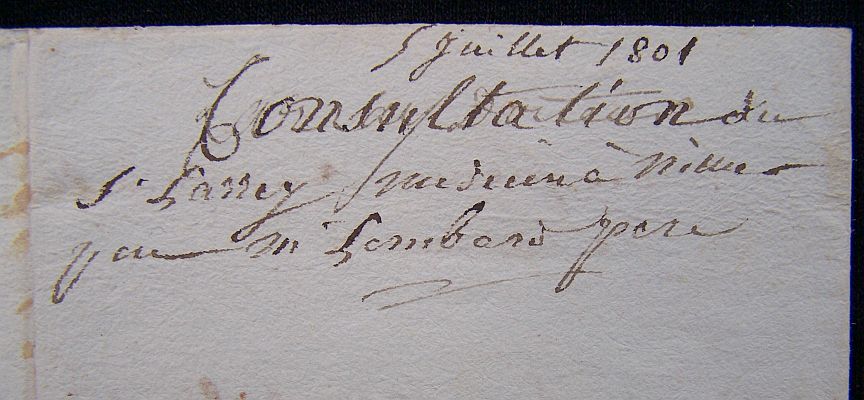 5 juillet 1801
Consultation du
Sr Larrey medecin a nime
pour mr Lombard pere